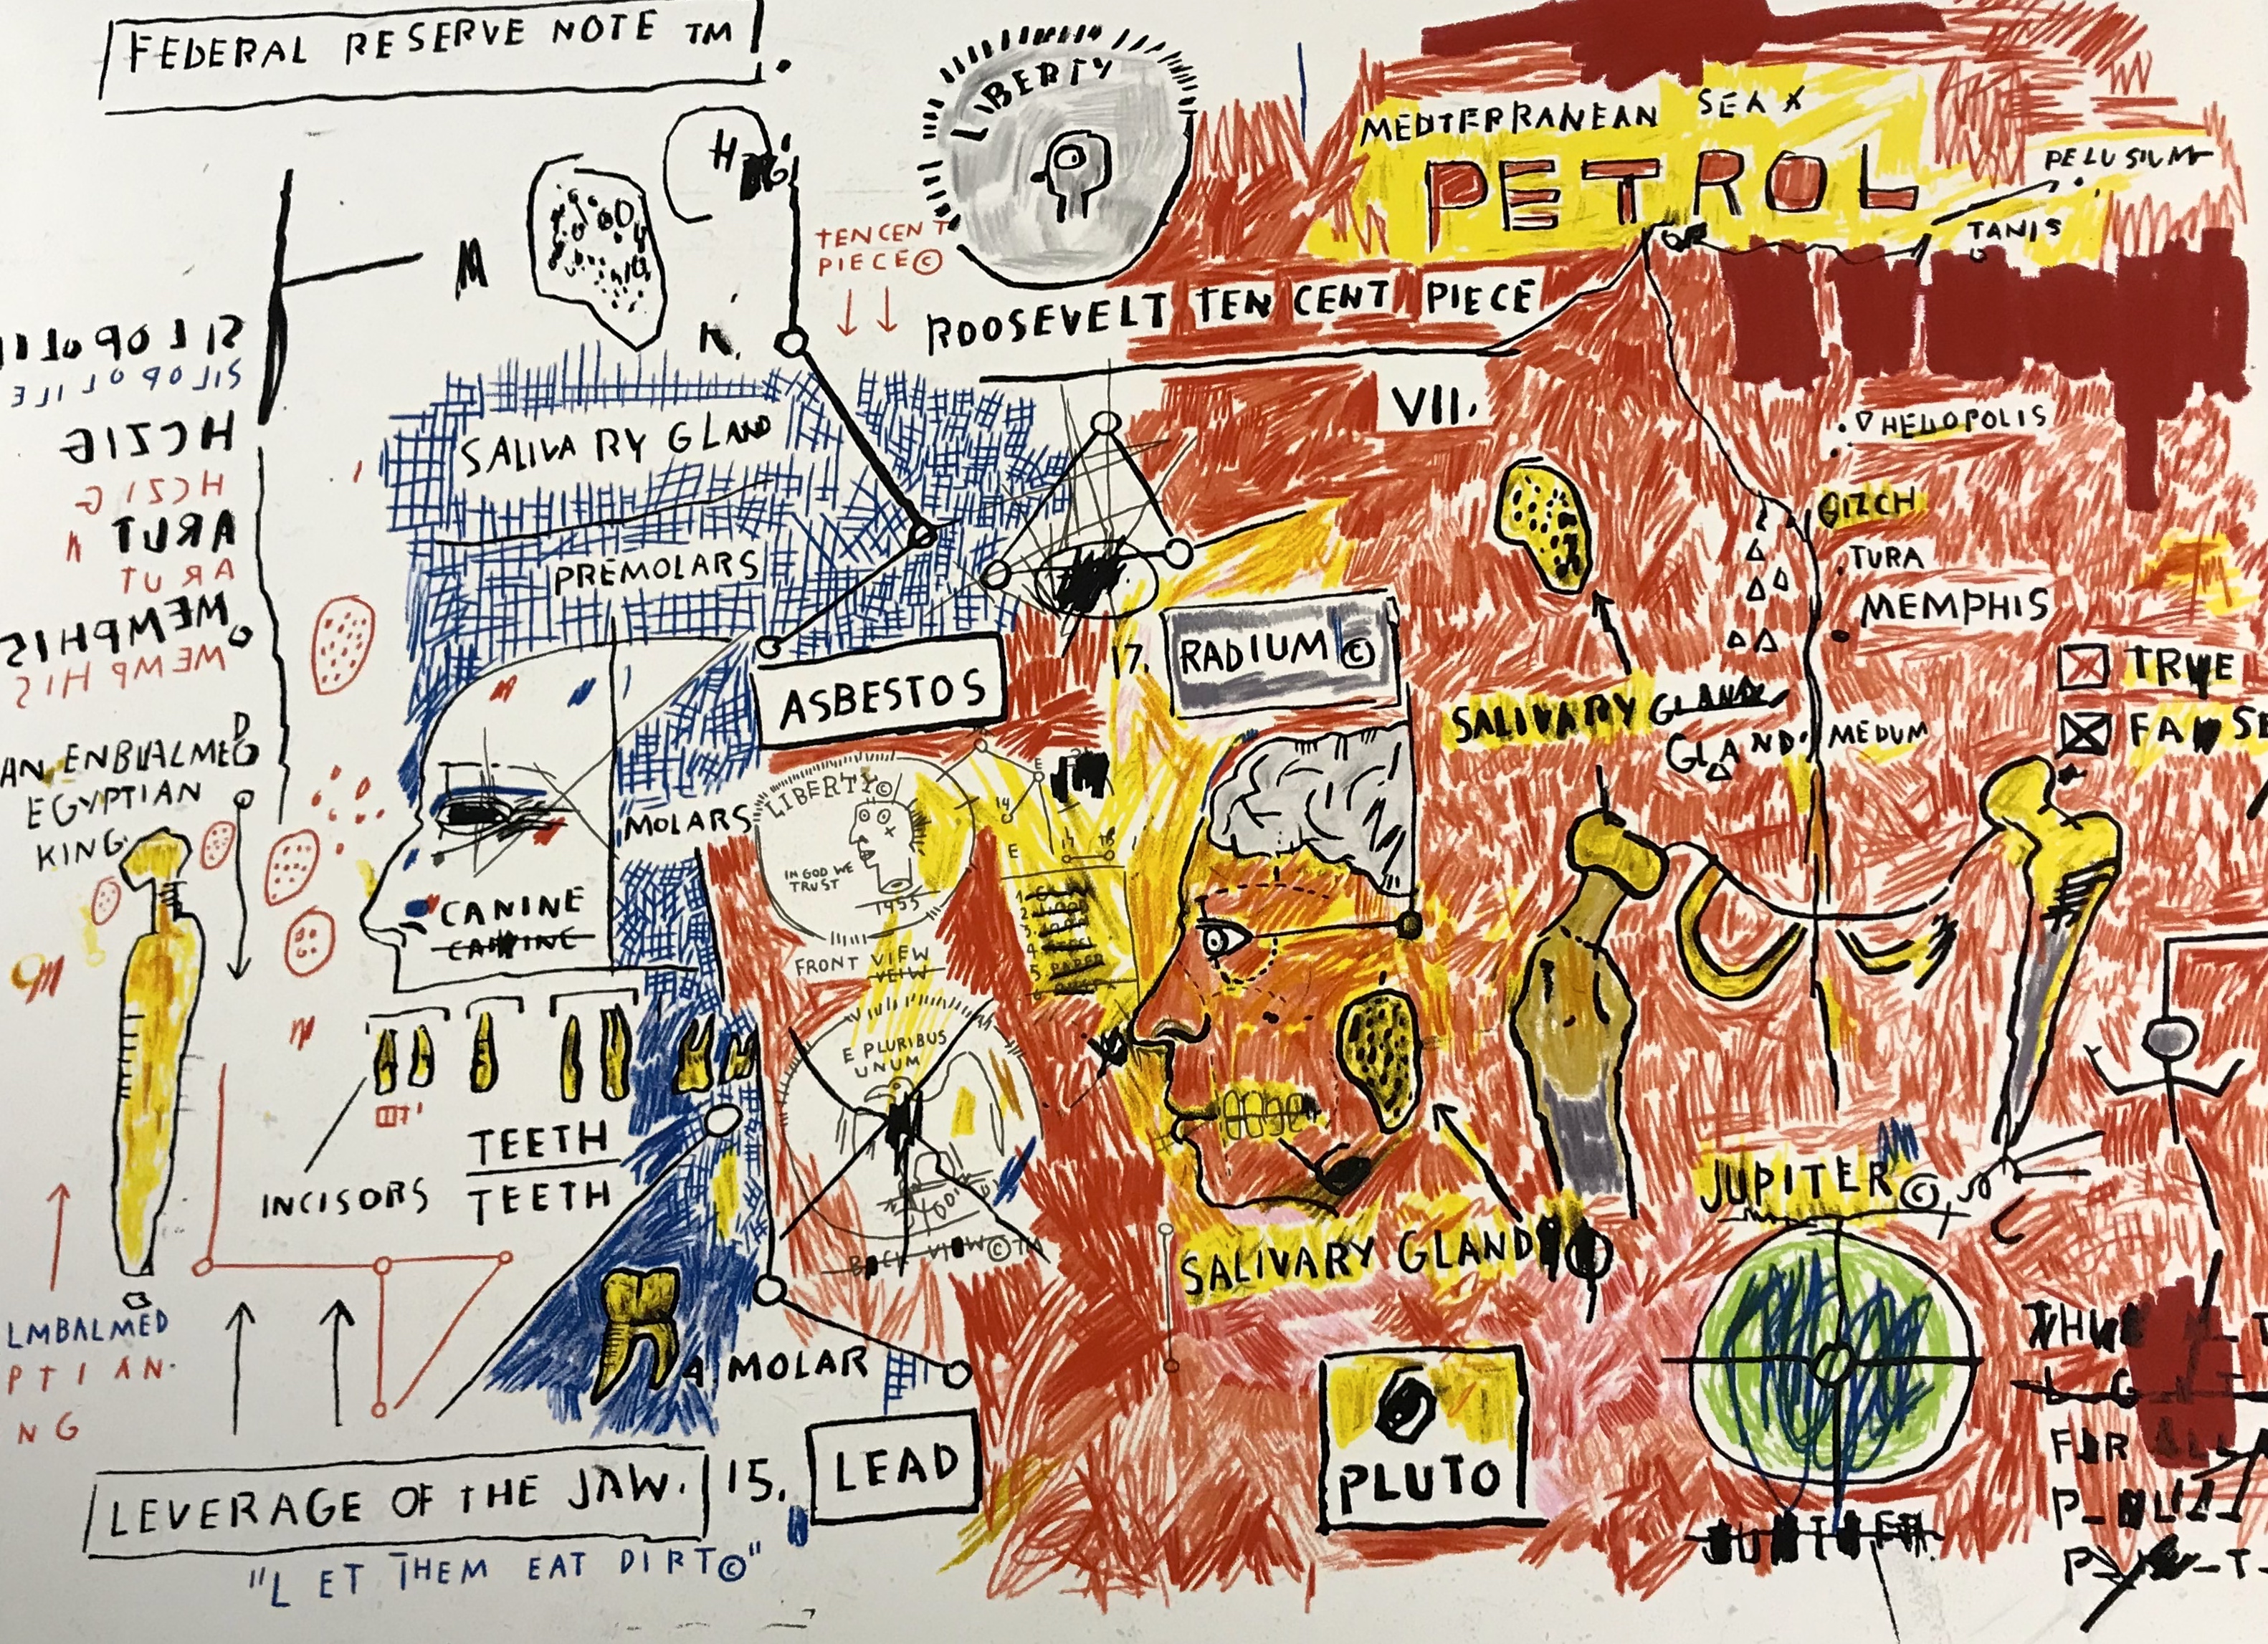 FEDERAL RESERVE NOTE TM
LIBERTY
TEN CENT
PIECE©
ROOSEVELT TEN CENT PIECE
MEDTERRANEAN SEA
PETROL
PELUSIUM
TANIS
VII.
HELIOPOLIS
GIZCH
TURA
MEMPHIS
MEDUM
TRUE
FALSE
M
SILOPOLI
SILOPOLILE
HCZIG
HCZIG
ARUT
ARUT
MEMPHIS
MEMPHIS
AN ENBLALMED
EGYPTIAN
KING.
SALIVARY GLAND
PREMOLARS
MOLARS
CANINE
CANINE
ASBESTOS
17.
RADIUM ©
SALIVARY GLAND
GLAND.
LIBERTY©
IN GOD WE
TRUST
1955
FRONT VIEW
VEIW
5. PAPER
E PLURIBUS
UNUM
BACK VIEW©TM
INCISORS
TEETH
TEETH
SALIVARY GLAND
JUPITER©
LMBALMED
PTIAN.
NG
A MOLAR
LEAD
15.
LEVERAGE OF THE JAW.
"LET THEM EAT DIRT©"
PLUTO
JUPITER.